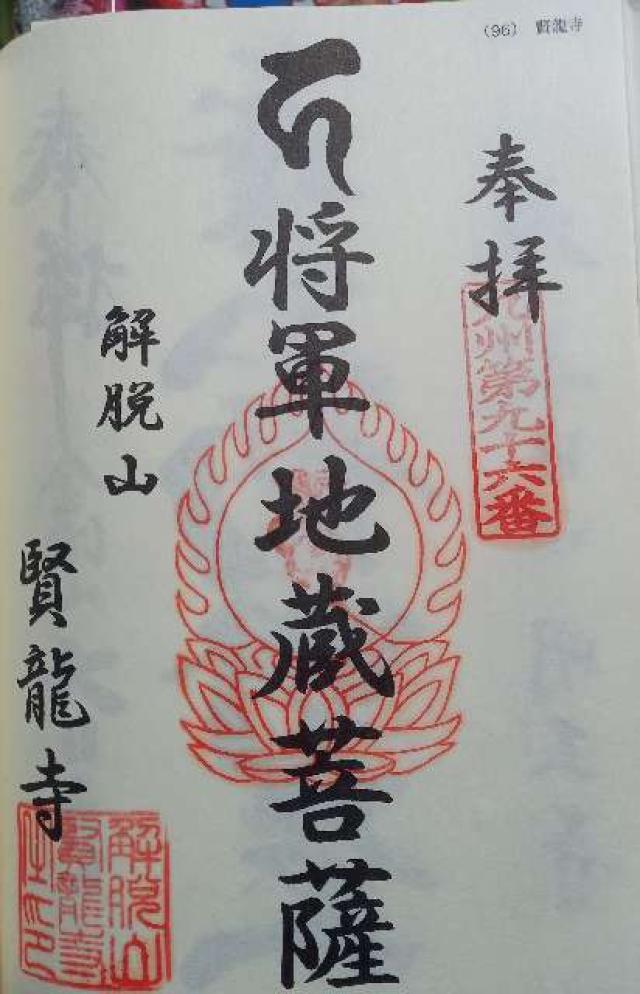 (96) 賢龍寺
奉拝
九州第九十六番
将軍地蔵菩薩
解脱山
賢龍寺
解脱山
賢龍寺